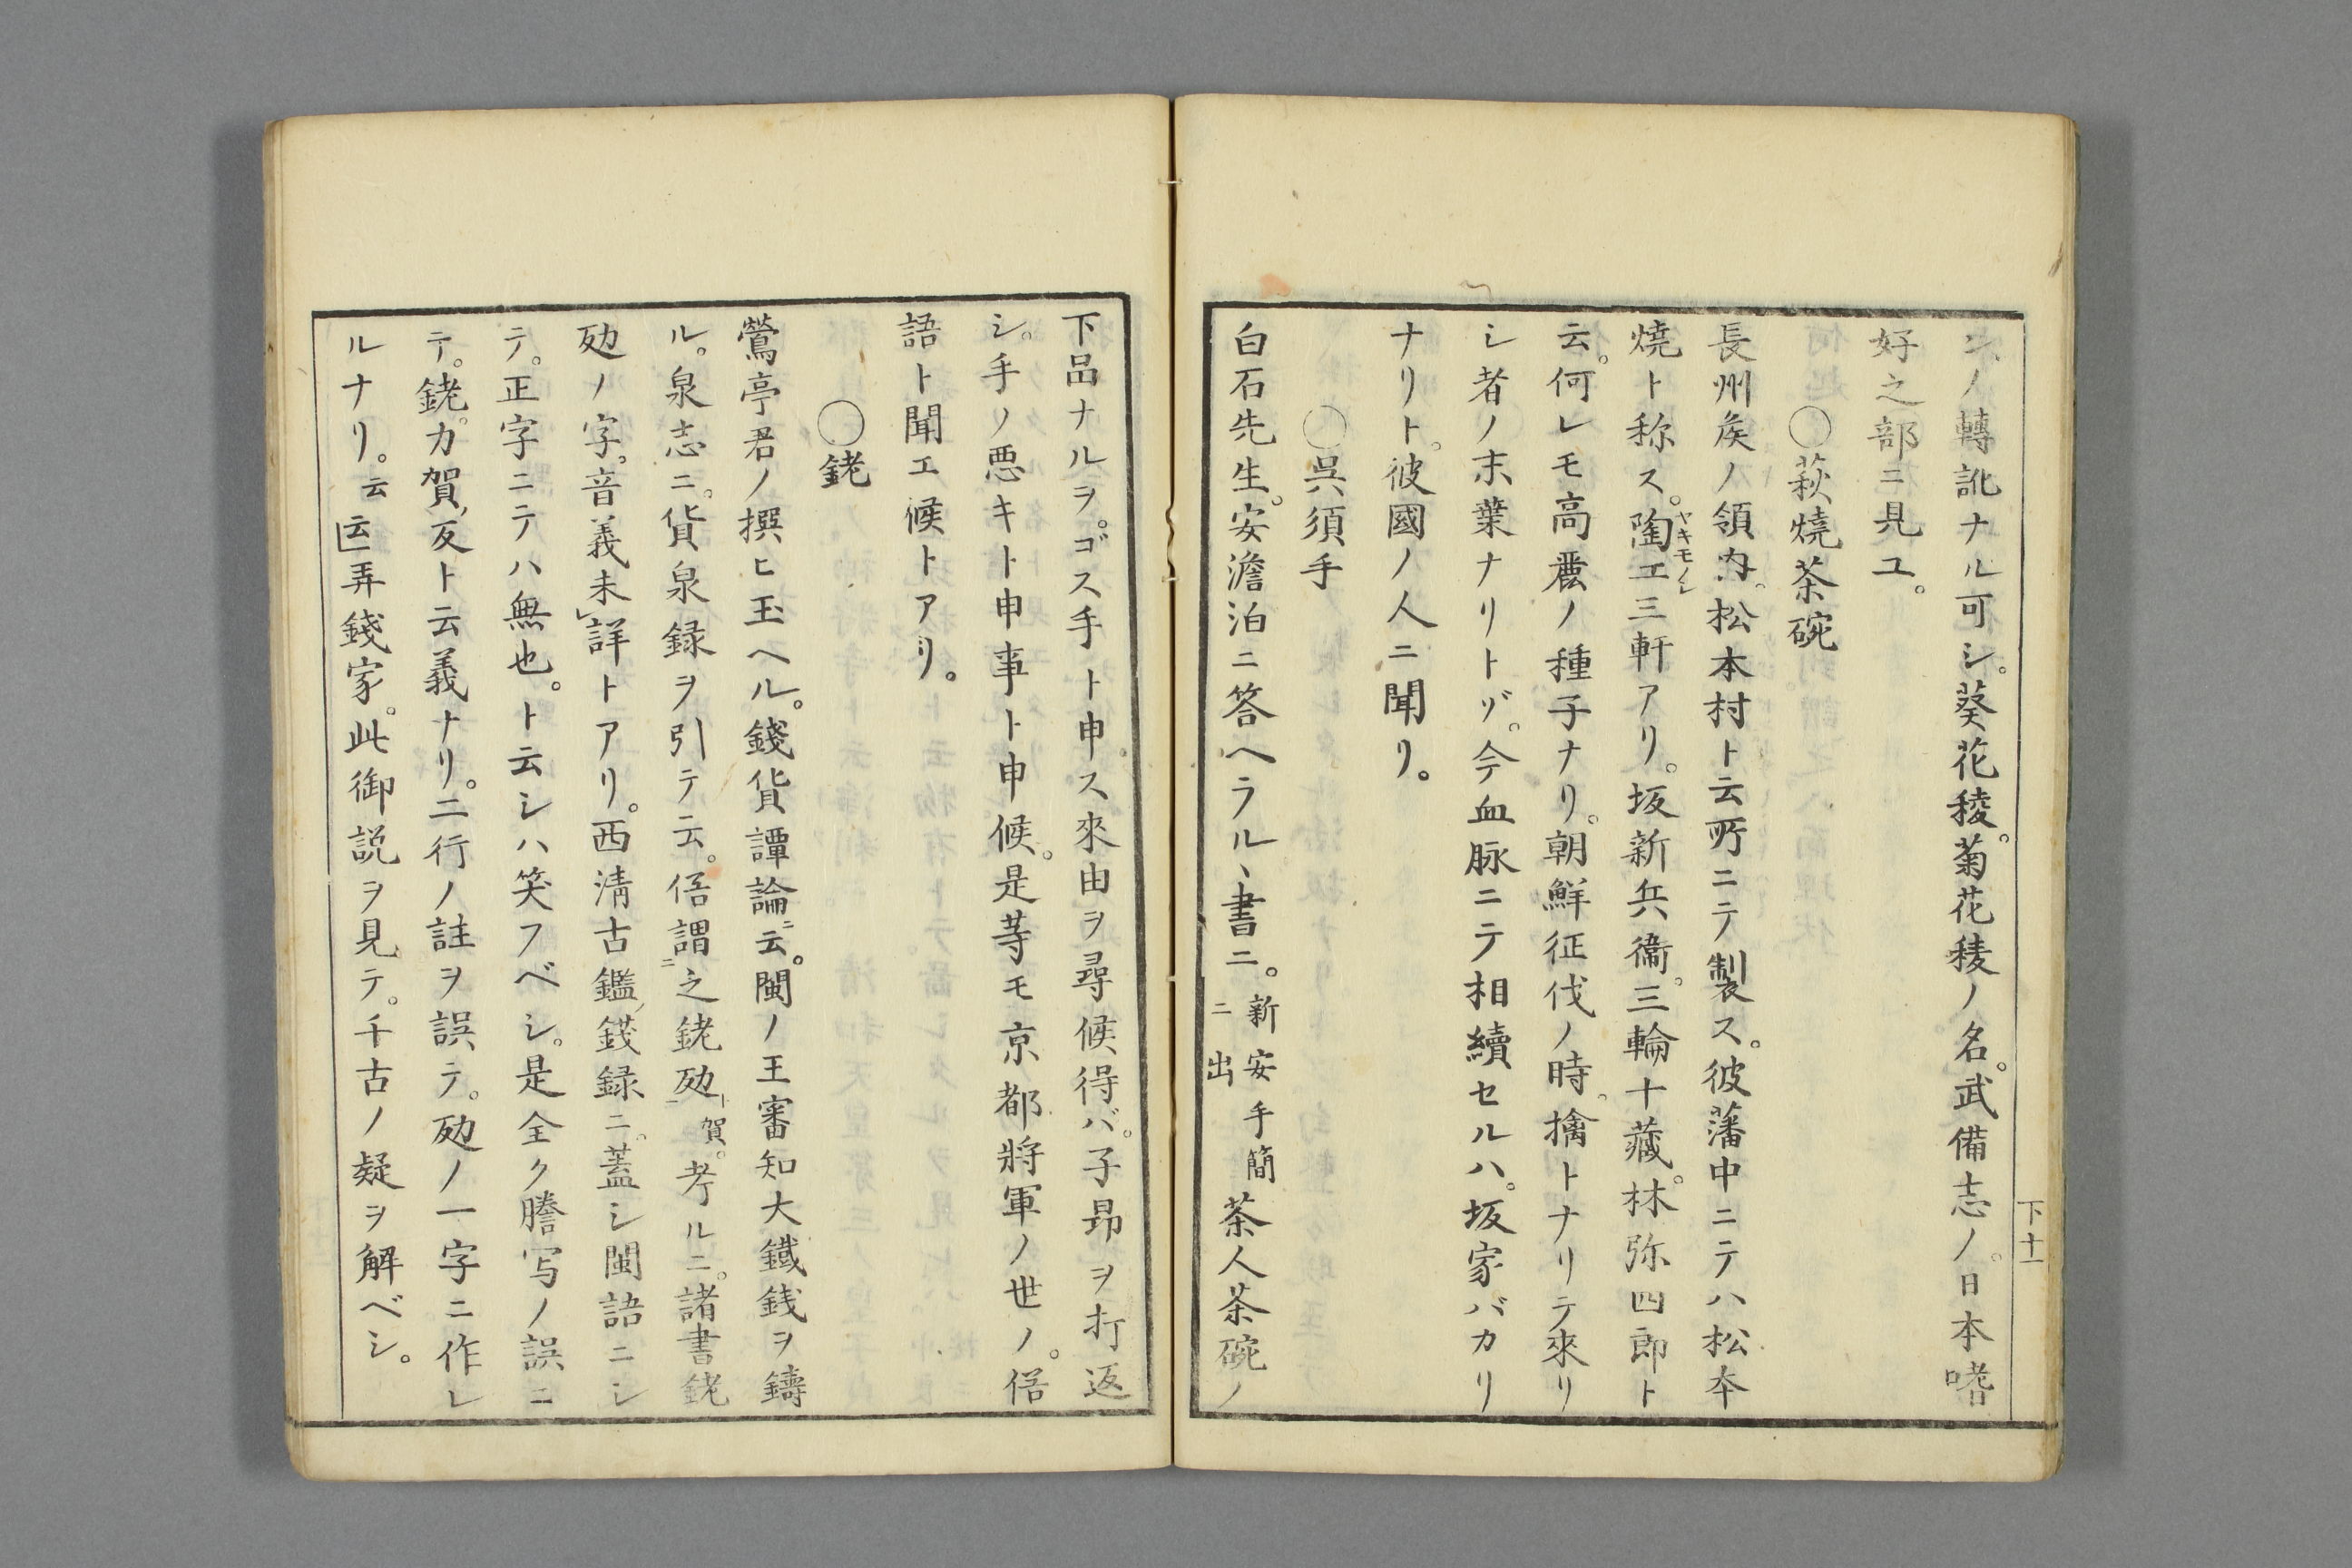 シノ轉訛ナル可シ。葵花稜。菊花稜ノ名。武備志ノ。日本嗜
好之部ニ見ユ。
〇萩燒茶碗
長州矦ノ領内。松本村ト云所ニテ製ス。彼藩中ニテハ松本
燒ト称ス。陶工三軒アリ。坂新兵衞。三輪十藏。林弥四郎ト
ヤキモノシ
云。何レモ高麗ノ種子ナリ。朝鮮征伐ノ時。擒トナリテ來リ
シ者ノ末葉ナリトゾ。今血脉ニテ相續セルハ。坂家バカリ
ナリト。彼國ノ人ニ聞リ。
〇呉須手
白石先生。安澹泊ニ答ヘラルヽ書ニ。新安手簡ニ出茶人茶碗ノ
下十一
下品ナルヲ。ゴス手ト申ス來由ヲ尋候得バ。子昂ヲ打返
シ。手ノ悪キト申事ト申候。是等モ京都將軍ノ世ノ。俗
語ト聞エ候トアリ。
〇銠
鶯亭君ノ撰ヒ玉ヘル。錢貨譚論ニ云。閩ノ王審知大鐵銭ヲ鑄
ル。泉志ニ。貨泉録ヲ引テ云。俗謂之銠㔢ト賀。考ルニ。諸書銠
㔢ノ字。音義未詳トアリ。西清古鑑錢録ニ。蓋シ閩語ニシ
テ。正字ニテハ無也。ト云シハ笑フベシ。是全ク謄写ノ誤ニ
テ。銠。カ賀反ト云義ナリ。二行ノ註ヲ誤テ。㔢ノ一字ニ作レ
ルナリ。云云弄錢家。此御説ヲ見テ。千古ノ疑ヲ解ベシ。